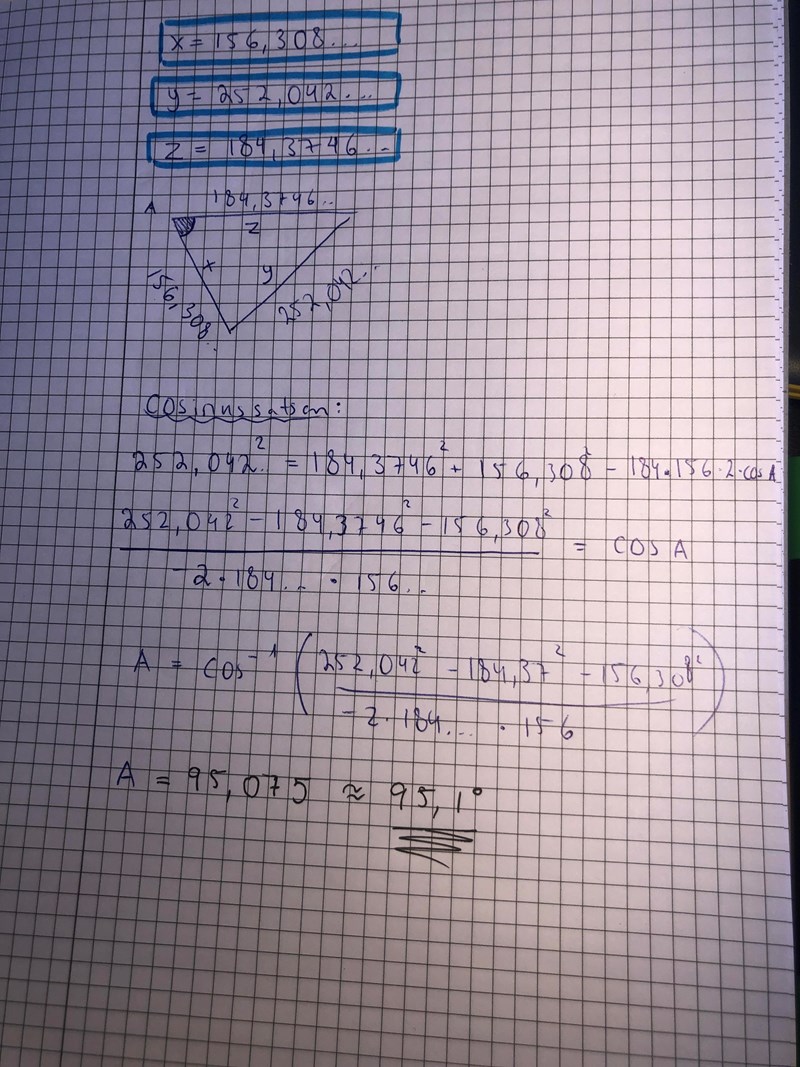 x = 156,308...
y = 252,042...
z = 184,3746...
184,3746..
A
z
x
y
156,308..
252,042...
Cosinussatsen:
252,042² = 184,3746² + 156,308² - 184·156·2·cos A
252,042² - 184,3746² - 156,308²
= cos A
-2·184... · 156..
A = cos⁻¹ ( 252,042² - 184,37² - 156,308² )
-2·184... · 156
A = 95,075 ≈ 95,1°